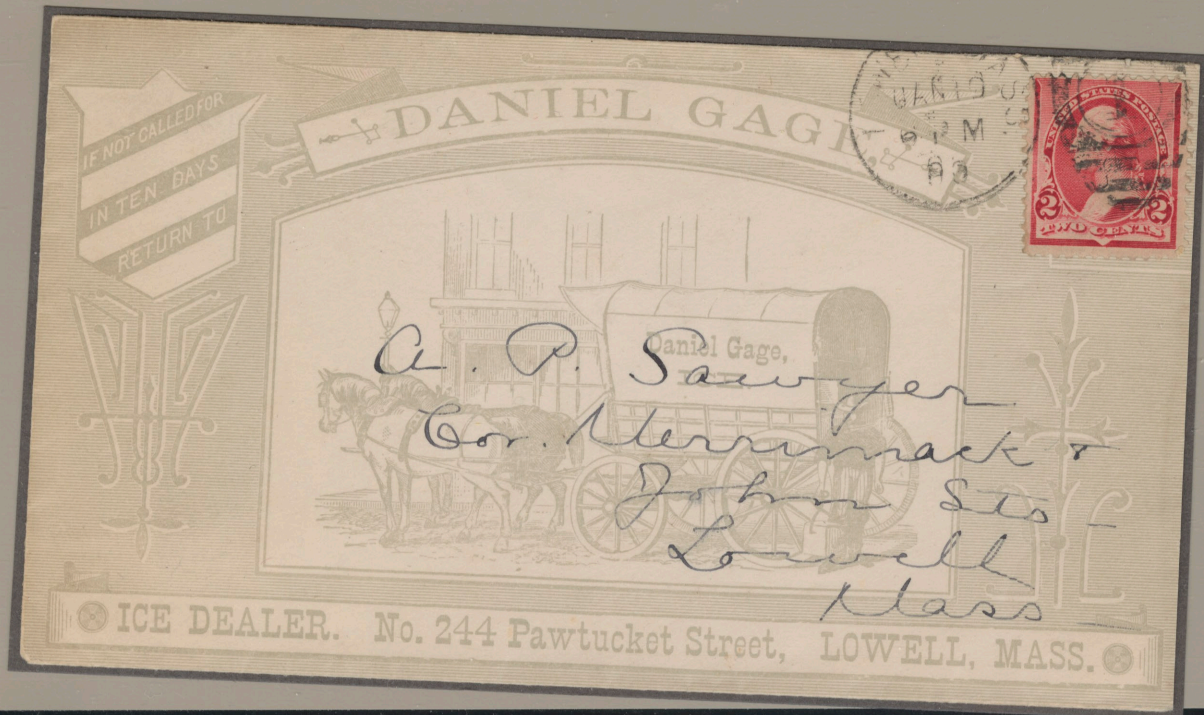 IF NOT CALLED FOR
IN TEN DAYS
RETURN TO
DANIEL GAGE,
JAN 19
PM
UNITED STATES POSTAGE
2 2
TWO CENTS
Daniel Gage,
A. P. Sawyer
Cor. Merrimack &
John Sts -
Lowell
Mass
ICE DEALER. No. 244 Pawtucket Street, LOWELL, MASS.